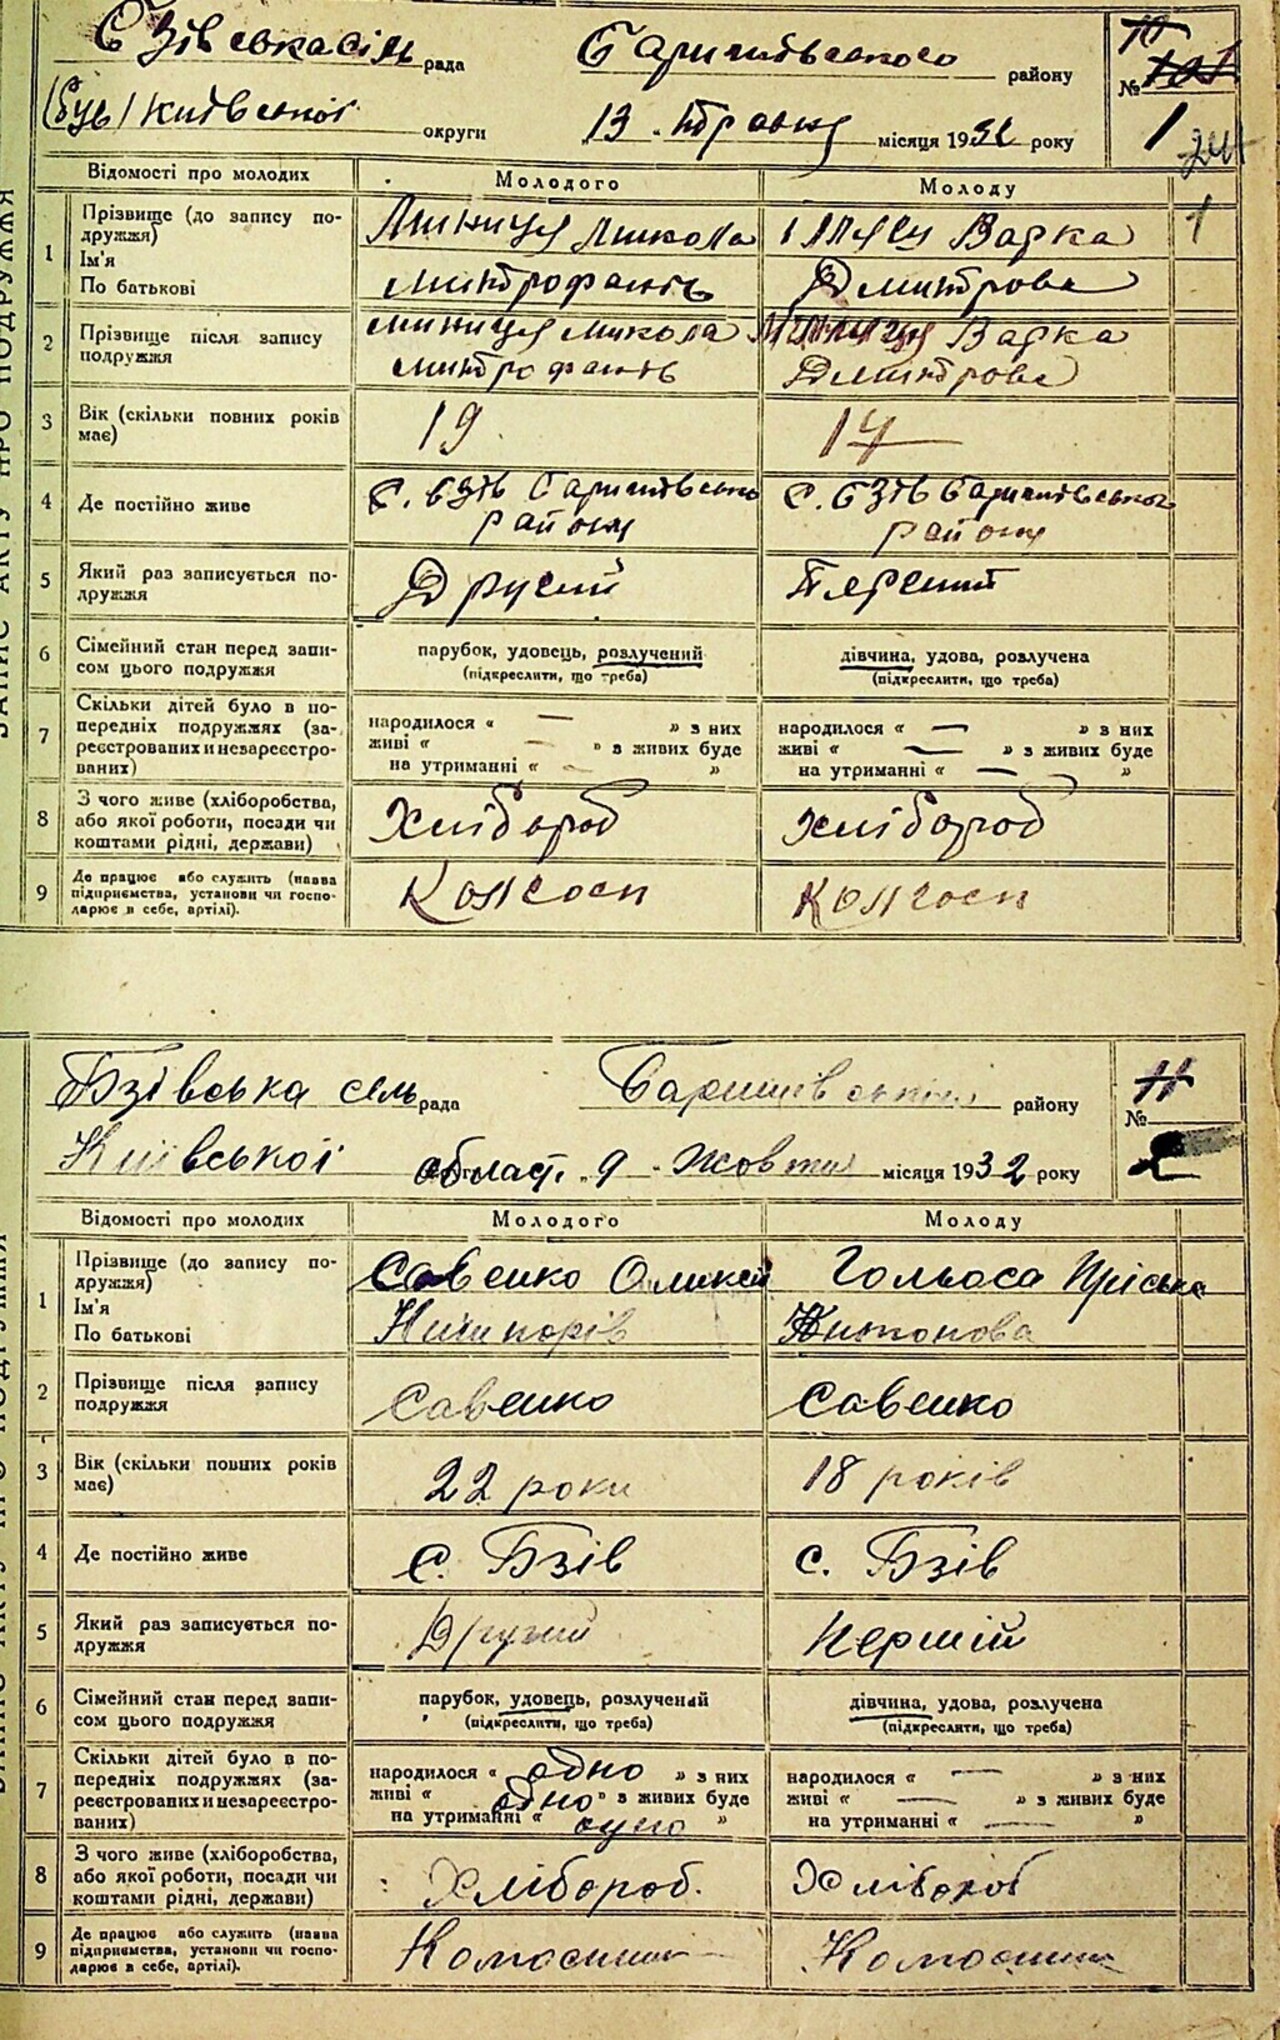 Бзівська сіль рада Баришівського району
(був) Київської округи „13 - травня місяця 1932 року
10
№
1
241
Відомості про молодих Молодого Молоду
1 Прізвище (до запису по-
дружжя)
Ім'я
По батькові
Миниця Микола
Митрофанів
Варка
Дмитрова
1
2 Прізвище після запису
подружжя
Миниця Микола
Митрофанів
Миниця Варка
Дмитрова
3 Вік (скільки повних років
має)
19
17
4 Де постійно живе
с. Бзів Баришівського
району
с. Бзів Баришівського
району
5 Який раз записується по-
дружжя
Другий
Первий
6 Сімейний стан перед запи-
сом цього подружжя
парубок, удовець, розлучений
(підкреслити, що треба)
дівчина, удова, розлучена
(підкреслити, що треба)
7 Скільки дітей було в по-
передніх подружжях (за-
реєстрованих и незареєстро-
ваних)
народилося « — » з них
живі « — » з живих буде
на утриманні « — »
народилося « — » з них
живі « — » з живих буде
на утриманні « — »
8 З чого живе (хліборобства,
або якої роботи, посади чи
коштами рідні, держави)
Хлібороб
Хлібороб
9 Де працює або служить (назва
підприємства, установи чи госпо-
дарює в себе, артілі).
Колгосп
Колгосп
ЗАПИС АКТУ ПРО ПОДРУЖЖЯ
Бзівська сель рада Баришівський району
Київської област. „9 - Жовтня місяця 1932 року
11
№
2
Відомості про молодих Молодого Молоду
1 Прізвище (до запису по-
дружжя)
Ім'я
По батькові
Савенко Олексій
Ничипорів
Гольоса Пріська
2 Прізвище після запису
подружжя
Савенко
Савенко
3 Вік (скільки повних років
має)
22 роки
18 років
4 Де постійно живе
с. Бзів
с. Бзів
5 Який раз записується по-
дружжя
Другий
Першій
6 Сімейний стан перед запи-
сом цього подружжя
парубок, удовець, розлучений
(підкреслити, що треба)
дівчина, удова, розлучена
(підкреслити, що треба)
7 Скільки дітей було в по-
передніх подружжях (за-
реєстрованих и незареєстро-
ваних)
народилося « одно » з них
живі « одно » з живих буде
на утриманні « одно »
народилося « — » з них
живі « — » з живих буде
на утриманні « — »
8 З чого живе (хліборобства,
або якої роботи, посади чи
коштами рідні, держави)
Хлібороб.
Хлібороб
9 Де працює або служить (назва
підприємства, установи чи госпо-
дарює в себе, артілі).